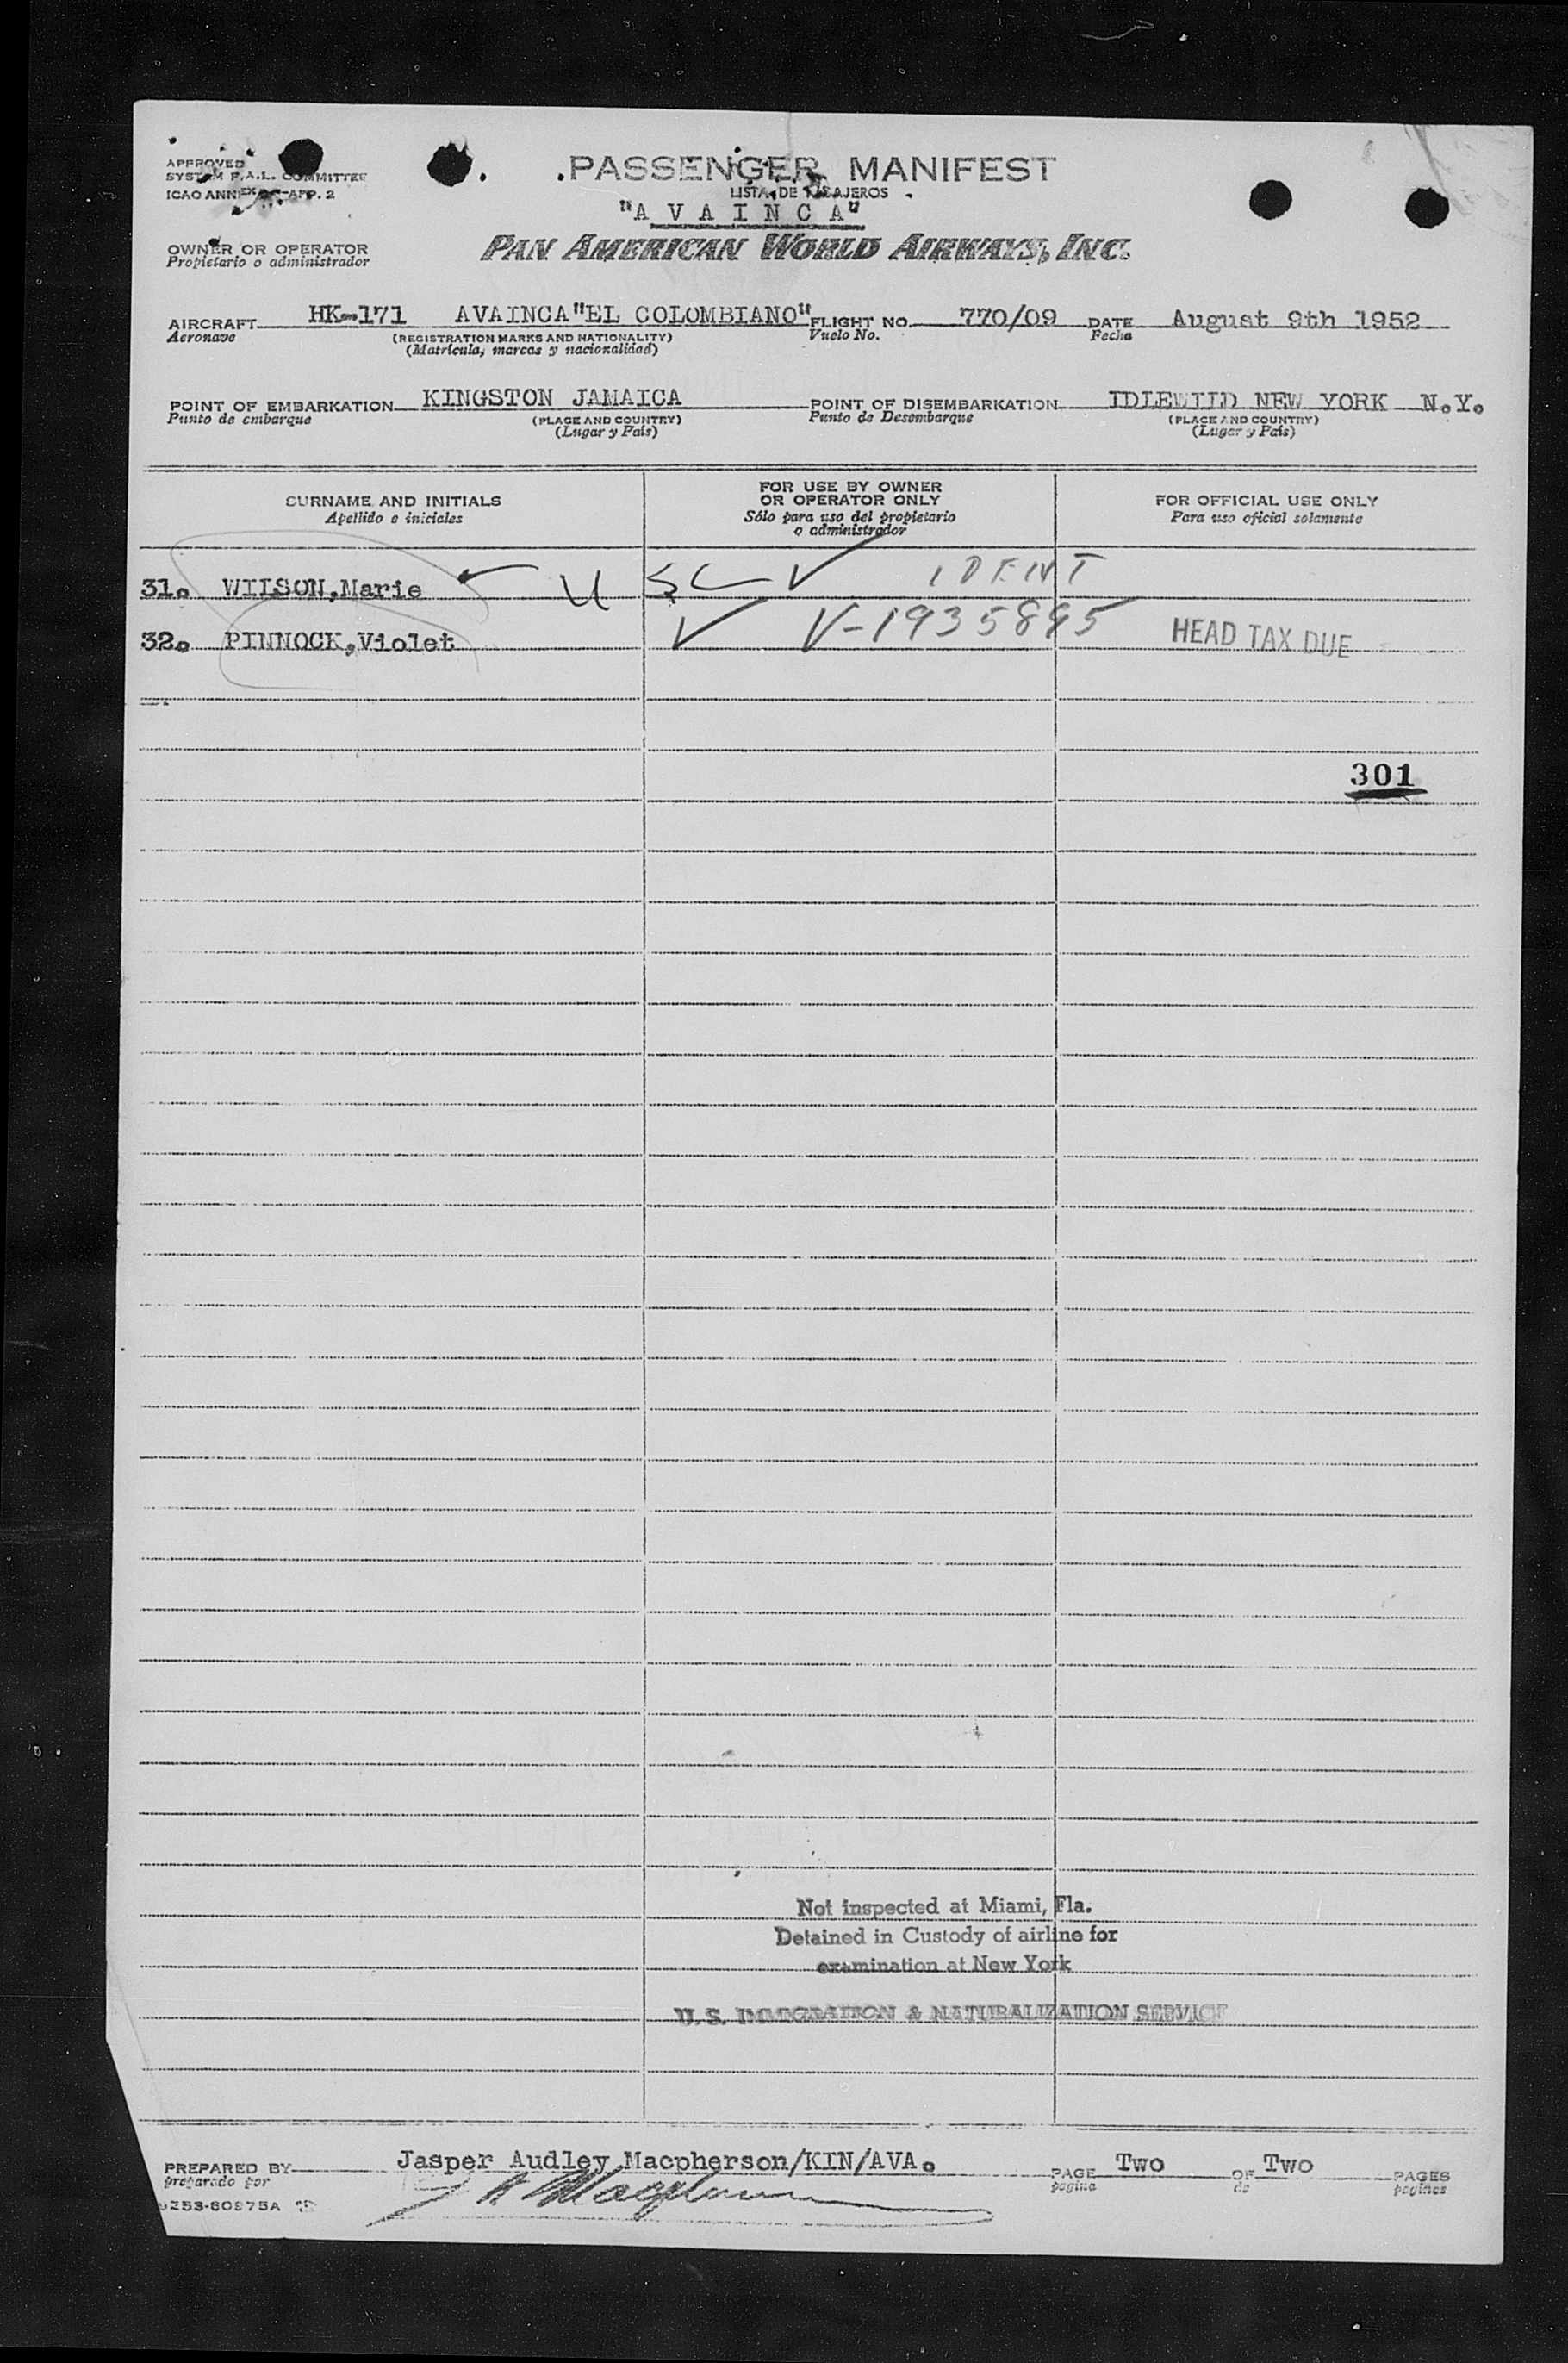 PASSENGER MANIFEST
APPROVED
SYSTEM F.A.L. COMMITTEE
ICAO ANNEX 9-APP. 2
LISTA DE PASAJEROS
"A V A I N C A"
OWNER OR OPERATOR
Propietario o administrador
PAN AMERICAN WORLD AIRWAYS, INC.
AIRCRAFT HK-171 AVAINCA"EL COLOMBIANO" FLIGHT NO. 770/09 DATE August 9th 1952
Aeronave (REGISTRATION MARKS AND NATIONALITY) Vuelo No. Fecha
(Matrícula, marcas y nacionalidad)
POINT OF EMBARKATION KINGSTON JAMAICA POINT OF DISEMBARKATION IDLEWILD NEW YORK N.Y.
Punto de embarque (PLACE AND COUNTRY) Punto de Desembarque (PLACE AND COUNTRY)
(Lugar y País) (Lugar y País)
SURNAME AND INITIALS
Apellido e iniciales
FOR USE BY OWNER
OR OPERATOR ONLY
Sólo para uso del propietario
o administrador
FOR OFFICIAL USE ONLY
Para uso oficial solamente
31. WILSON,Marie U S C ✓ IDENT
32. PINNOCK,Violet ✓ V-1935895 HEAD TAX DUE
301
Not inspected at Miami, Fla.
Detained in Custody of airline for
examination at New York
U. S. IMMIGRATION & NATURALIZATION SERVICE
PREPARED BY Jasper Audley Macpherson/KIN/AVA. PAGE Two OF Two PAGES
preparado por página de páginas